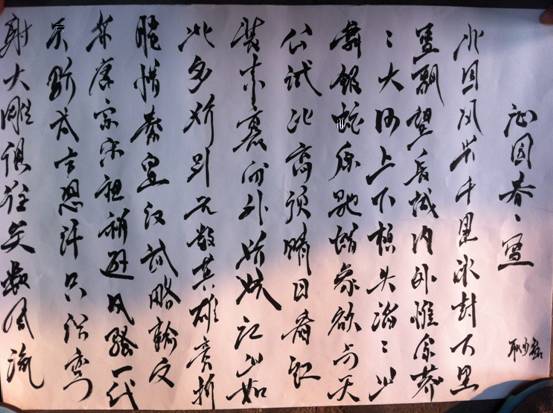 沁园春、雪
北国风光千里冰封万里
雪飘望长城内外惟余莽
、大河上下顿失滔、山
舞银蛇原驰蜡象欲与天
公试比高须晴日看红
装素裹分外妖娆江山如
此多娇引无数英雄竞折
腰惜秦皇汉武略输文
采唐宗宋祖稍逊风骚一代
天骄成吉思汗只识弯弓
射大雕俱往矣数风流